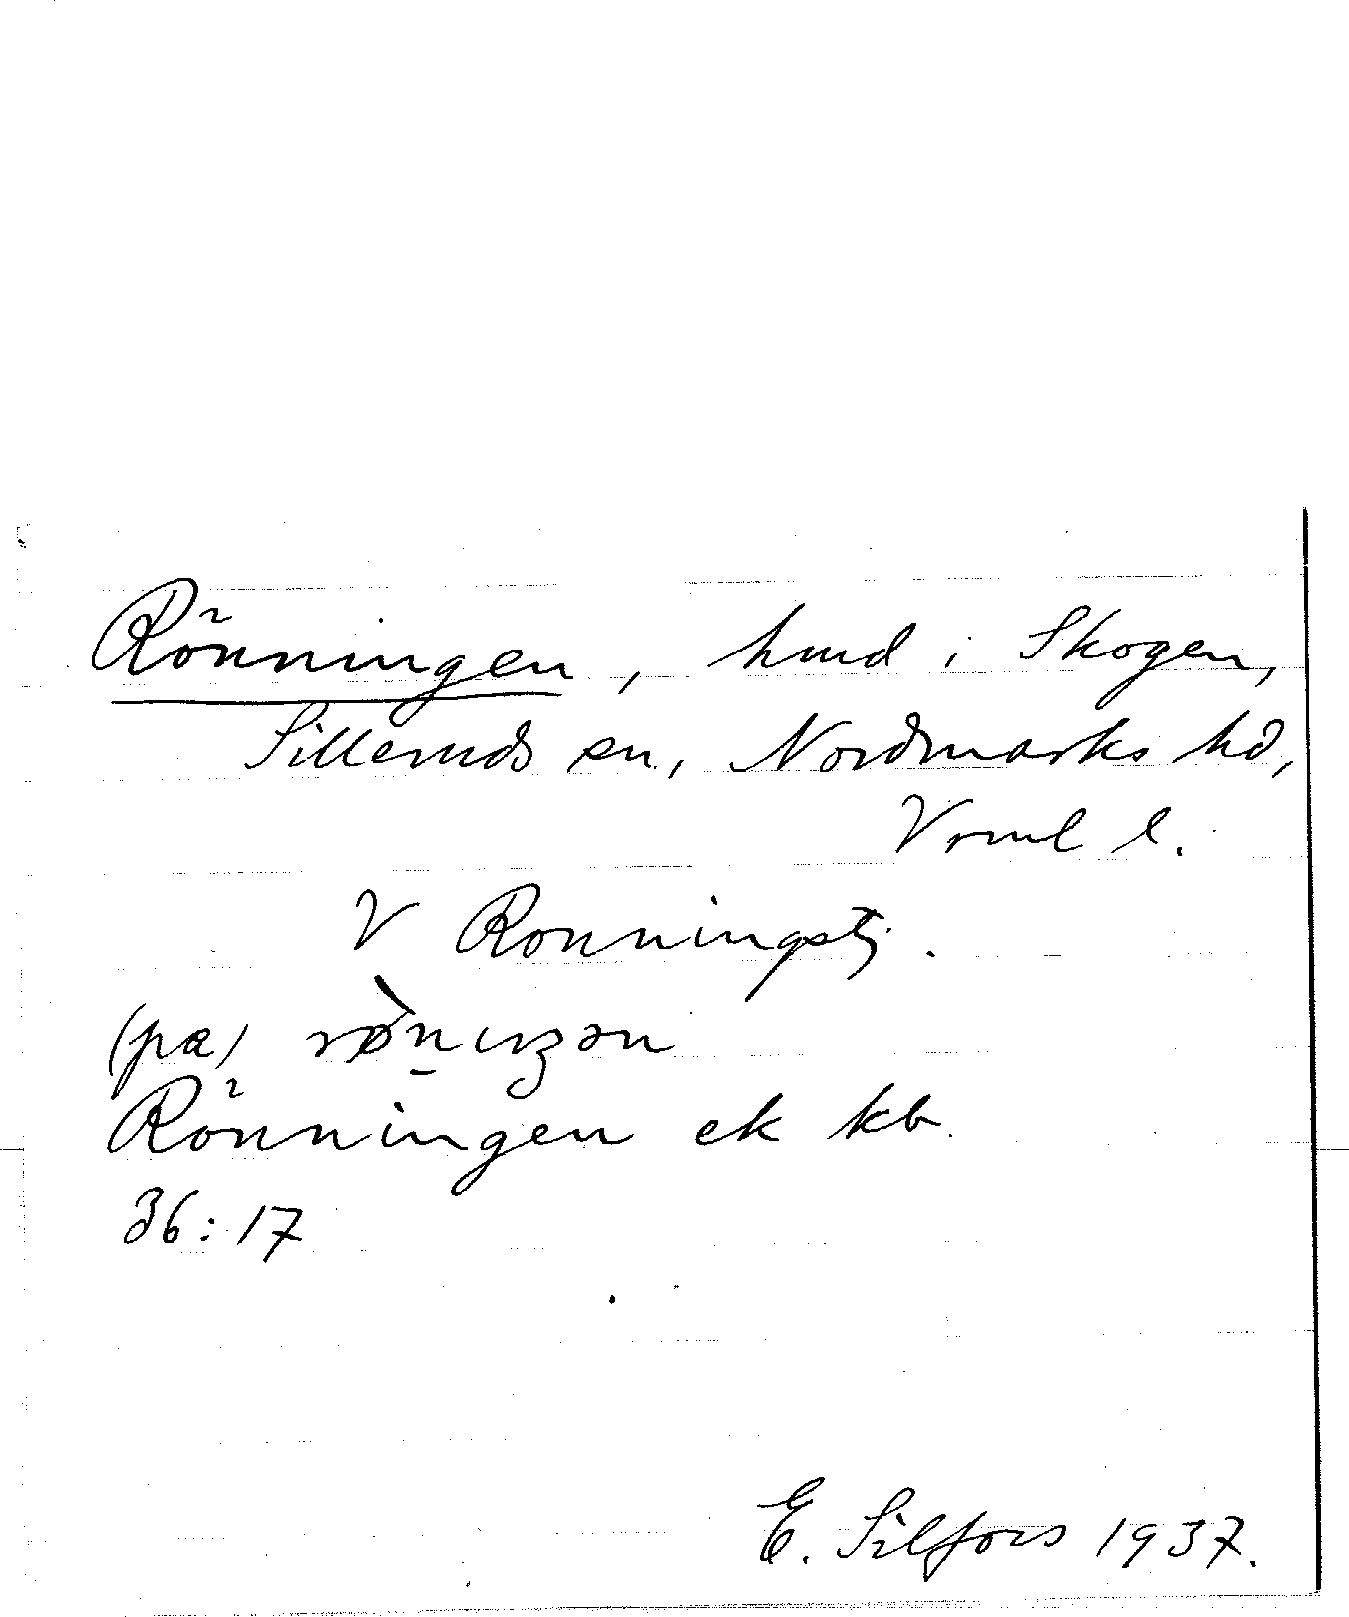 Rönningen, hmd i Skogen,
Silleruds sn, Nordmarks hd,
Vrml l.
V Rönningstj.
(pa)
Rönningen ek kb
36:17
E. Silfors 1937.